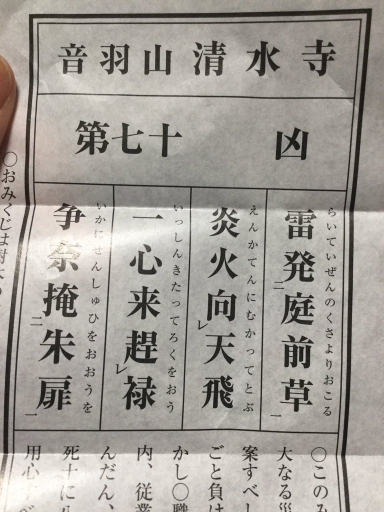 音羽山清水寺
第七十 凶
らいていぜんのくさよりおこる
雷発二庭前草一
えんかてんにむかってとぶ
炎火向レ天飛
いっしんきたってろくをおう
一心来趕レ禄
いかにせんしゅひをおおうを
争奈掩二朱扉一
〇このみ
大なる災
案すべし
ごと負け
かし〇職
内、従業
んだん、
死士に
用心す
〇おみくじは